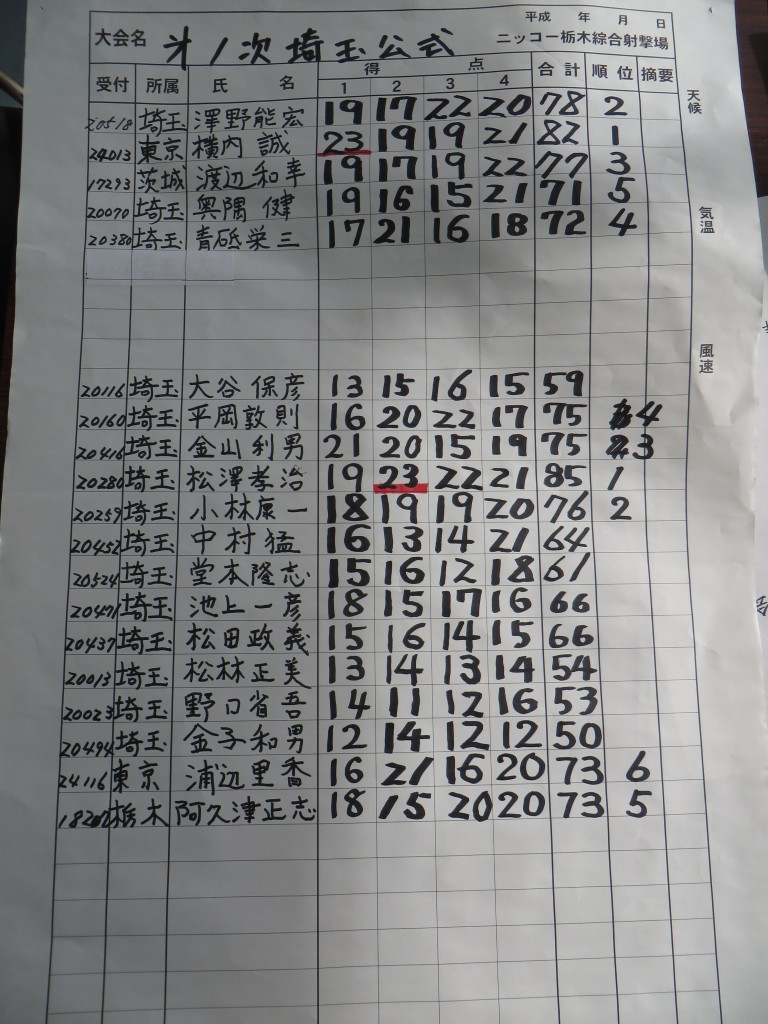 平成 年 月 日
大会名 才1次埼玉公式 ニッコー栃木綜合射撃場
受付 所属 氏 名 得 点 合計 順位 摘要
1 2 3 4
天候
20518 埼玉 澤野能宏 19 17 22 20 78 2
24013 東京 横内 誠 23 19 19 21 82 1
17293 茨城 渡辺和幸 19 17 19 22 77 3
20070 埼玉 奥隅 健 19 16 15 21 71 5
気温
20380 埼玉 青砥栄三 17 21 16 18 72 4
風速
20116 埼玉 大谷 保彦 13 15 16 15 59
20160 埼玉 平岡敦則 16 20 22 17 75 4
20416 埼玉 金山利男 21 20 15 19 75 3
20280 埼玉 松澤孝治 19 23 22 21 85 1
20259 埼玉 小林康一 18 19 19 20 76 2
20452 埼玉 中村猛 16 13 14 21 64
20524 埼玉 堂本隆志 15 16 12 18 61
20471 埼玉 池上一彦 18 15 17 16 66
20437 埼玉 松田政義 15 16 14 15 66
20013 埼玉 松林正美 13 14 13 14 54
20023 埼玉 野口省吾 14 11 12 16 53
20494 埼玉 金子和男 12 14 12 12 50
24116 東京 浦辺里喬 16 21 16 20 73 6
栃木 阿久津正志 18 15 20 20 73 5